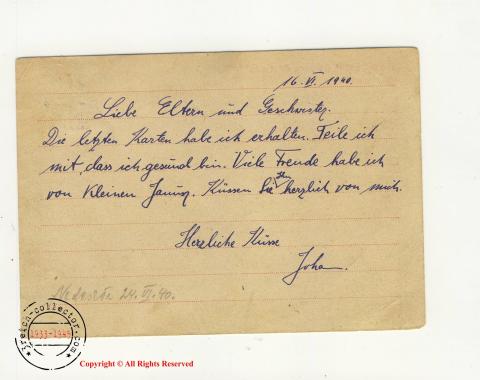 16. VI. 1940.
Liebe Eltern und Geschwister.
Die letzten Karten habe ich erhalten. Teile ich
mit, dass ich gesund bin. Viele Freude habe ich
von kleinen Janusz. Küssen Sie ihn herzlich von mich.
Herzliche Küsse
24. VI. 40.
3reich-collector.com
1933-1945
Copyright © All Rights Reserved